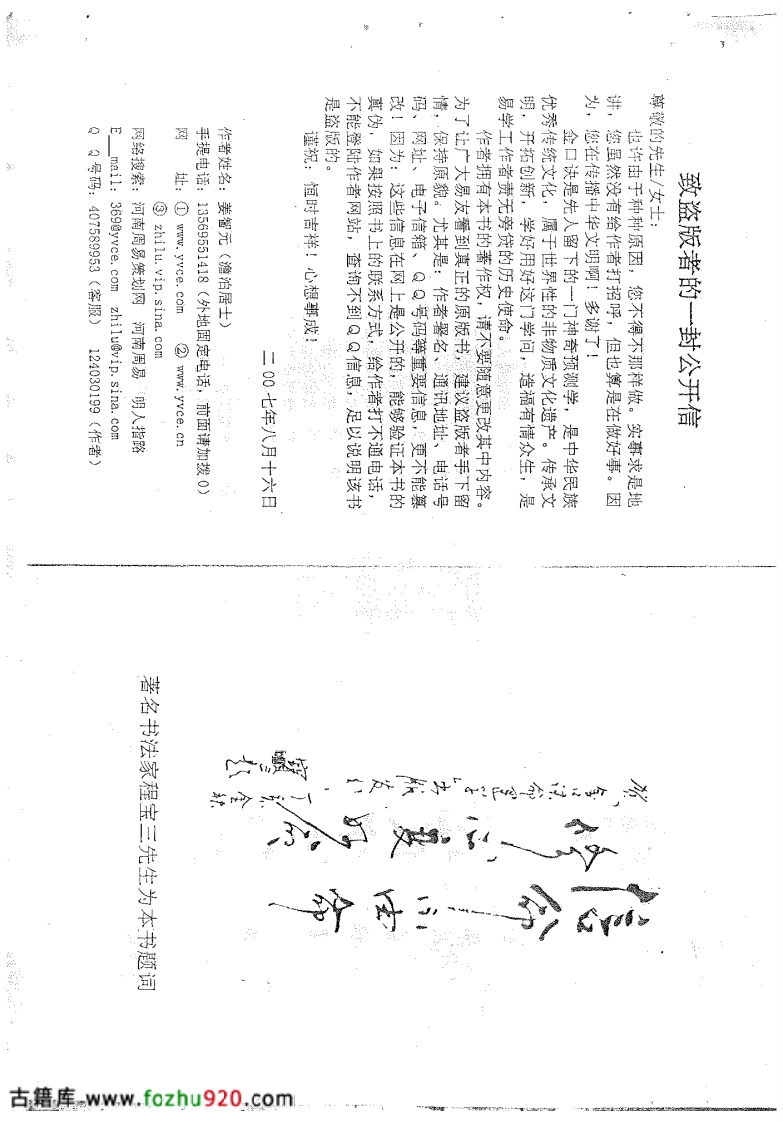 致盗版者的一封公开信
尊敬的先生/女士：
也许由于种种原因，您不得不那样做。实事求是地
讲，您虽然没有给作者打招呼，但也算是在做好事。因
为，您在传播中华文明啊！多谢了！
金口诀是先人留下的一门神奇预测学，是中华民族
优秀传统文化，属于世界性的非物质文化遗产。传承文
明，开拓创新，学好用好这门学问，造福有情众生，是
易学工作者责无旁贷的历史使命。
作者拥有本书的著作权，请不要随意更改其中内容。
为了让广大易友看到真正的原版书，建议盗版者手下留
情，保持原貌。尤其是：作者署名、通讯地址、电话号
码、网址、电子信箱、QQ号码等重要信息，更不能篡
改！因为：这些信息在网上是公开的，能够验证本书的
真伪，如果按照书上的联系方式，给作者打不通电话，
不能登陆作者网站，查询不到QQ信息，足以说明该书
是盗版的。
谨祝：恒时吉祥！心想事成！
二00七年八月十六日
作者姓名：姜智元（澹泊居士）
手提电话：13569551418（外地固定电话，前面请加拨0）
网 址：① www.yvce.com ② www.yvce.cn
③ zhilu.vip.sina.com
网络搜索：河南周易策划网 河南周易 明人指路
E__mail：369@yvce.com zhilu@vip.sina.com
Q Q号码：407589953（客服） 124030199（作者）
著名书法家程宝三先生为本书题词
古籍库 www.fozhu920.com